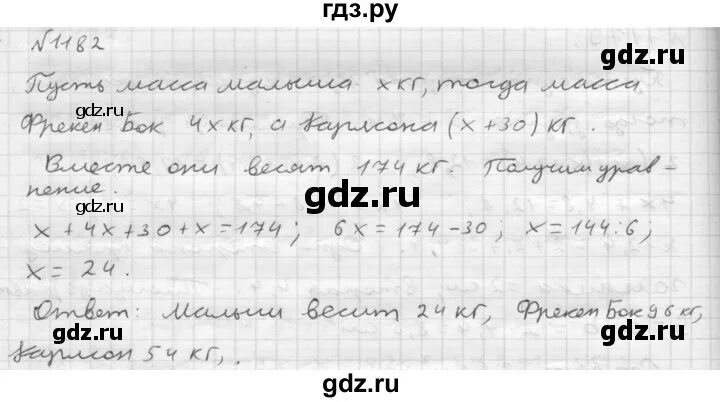 гдз.ру
№1182
gdz.ru
Пусть масса малыша x кг, тогда масса
gdz.ru
Фрекен Бок 4x кг, а Карлсона (x+30) кг.
Вместе они весят 174 кг. Получим урав-
gdz.ru
нение.
gdz.ru
x + 4x + 30 + x = 174; 6x = 174 - 30; x = 144 : 6;
x = 24.
gdz.ru
Ответ: Малыш весит 24 кг, Фрекен Бок 96 кг,
gdz.ru
Карлсон 54 кг,.
gdz.ru
gdz.ru